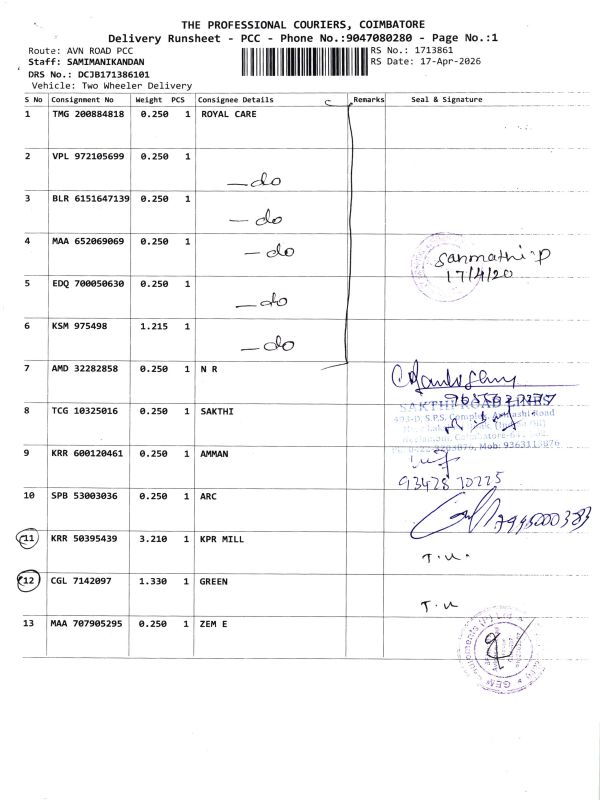 THE PROFESSIONAL COURIERS, COIMBATORE
Delivery Runsheet - PCC - Phone No.:9047080280 - Page No.:1
Route: AVN ROAD PCC
RS No.: 1713861
Staff: SAMIMANIKANDAN
RS Date: 17-Apr-2026
DRS No.: DCJB171386101
Vehicle: Two Wheeler Delivery
S No Consignment No Weight PCS Consignee Details Remarks Seal & Signature
1 TMG 200884818 0.250 1 ROYAL CARE
2 VPL 972105699 0.250 1
- do
3 BLR 6151647139 0.250 1
- do
4 MAA 652069069 0.250 1
- do
Sanmathi.P
17/4/20
5 EDQ 700050630 0.250 1
- do
6 KSM 975498 1.215 1
- do
7 AMD 32282858 0.250 1 N R
8 TCG 10325016 0.250 1 SAKTHI
SAKTHI ROAD LINES
9 KRR 600120461 0.250 1 AMMAN
93428 70225
10 SPB 53003036 0.250 1 ARC
11 KRR 50395439 3.210 1 KPR MILL
T.U.
12 CGL 7142097 1.330 1 GREEN
T.U
13 MAA 707905295 0.250 1 ZEM E